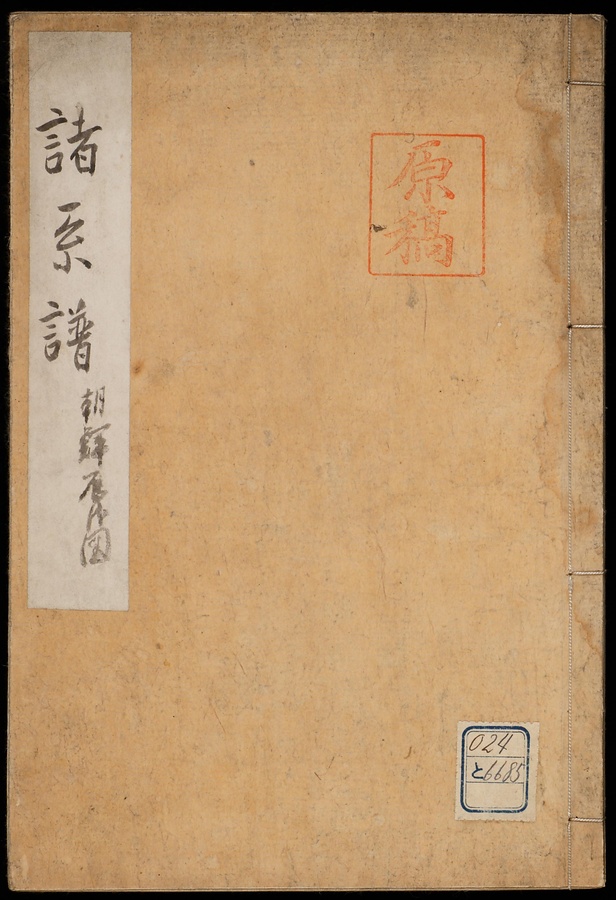 諸系譜
朝鮮
原稿
024
と6685